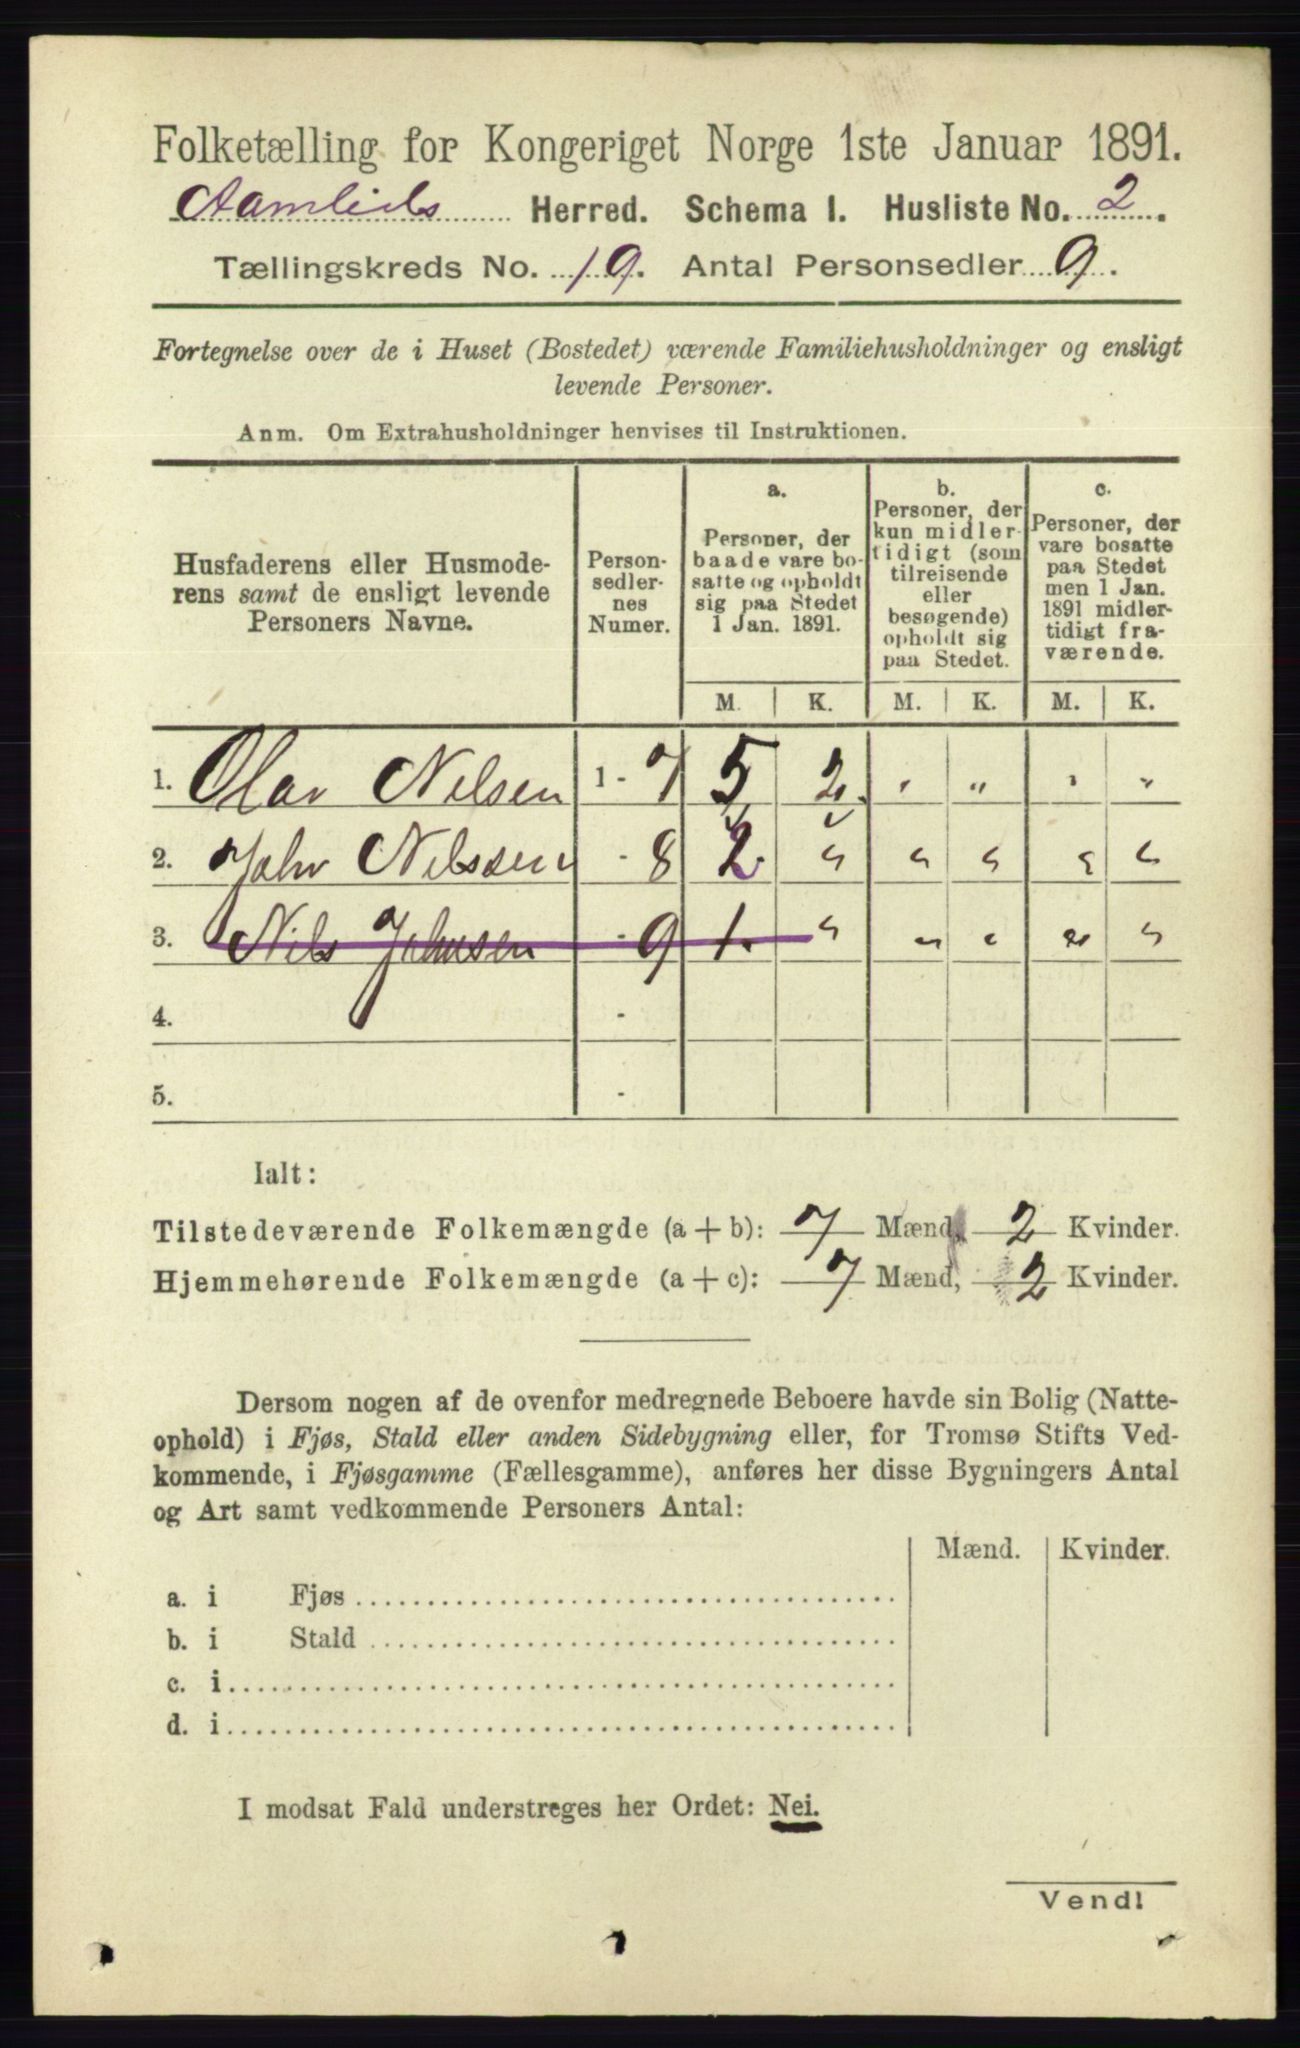 Folketælling for Kongeriget Norge 1ste Januar 1891.
Aamlids Herred. Schema I. Husliste No. 2.
Tællingskreds No. 19. Antal Personsedler 9.
Fortegnelse over de i Huset (Bostedet) værende Familiehusholdninger og ensligt
levende Personer.
Anm. Om Extrahusholdninger henvises til Instruktionen.
Husfaderens eller Husmode-
rens samt de ensligt levende
Personers Navne.
Person-
sedler-
nes
Numer.
a.
Personer, der
baade vare bo-
satte og opholdt
sig paa Stedet
1 Jan. 1891.
b.
Personer, der
kun midler-
tidigt (som
tilreisende
eller
besøgende)
opholdt sig
paa Stedet.
c.
Personer, der
vare bosatte
paa Stedet
men 1 Jan.
1891 midler-
tidigt fra-
værende.
M. K. M. K. M. K.
1. Olav Nilsen 1 - 7 5 2 " " " "
2. Johv Nilssen - 8 2 " " " " "
3. Nils Johnsen - 9 1. " " " " "
4. -
5. -
Ialt:
Tilstedeværende Folkemængde (a + b): 7 Mænd, 2 Kvinder.
Hjemmehørende Folkemængde (a + c): 7 Mænd, 2 Kvinder.
Dersom nogen af de ovenfor medregnede Beboere havde sin Bolig (Natte-
ophold) i Fjøs, Stald eller anden Sidebygning eller, for Tromsø Stifts Ved-
kommende, i Fjøsgamme (Fællesgamme), anføres her disse Bygningers Antal
og Art samt vedkommende Personers Antal:
Mænd. Kvinder.
a. i Fjøs
b. i Stald
c. i
d. i
I modsat Fald understreges her Ordet: Nei.
Vend!